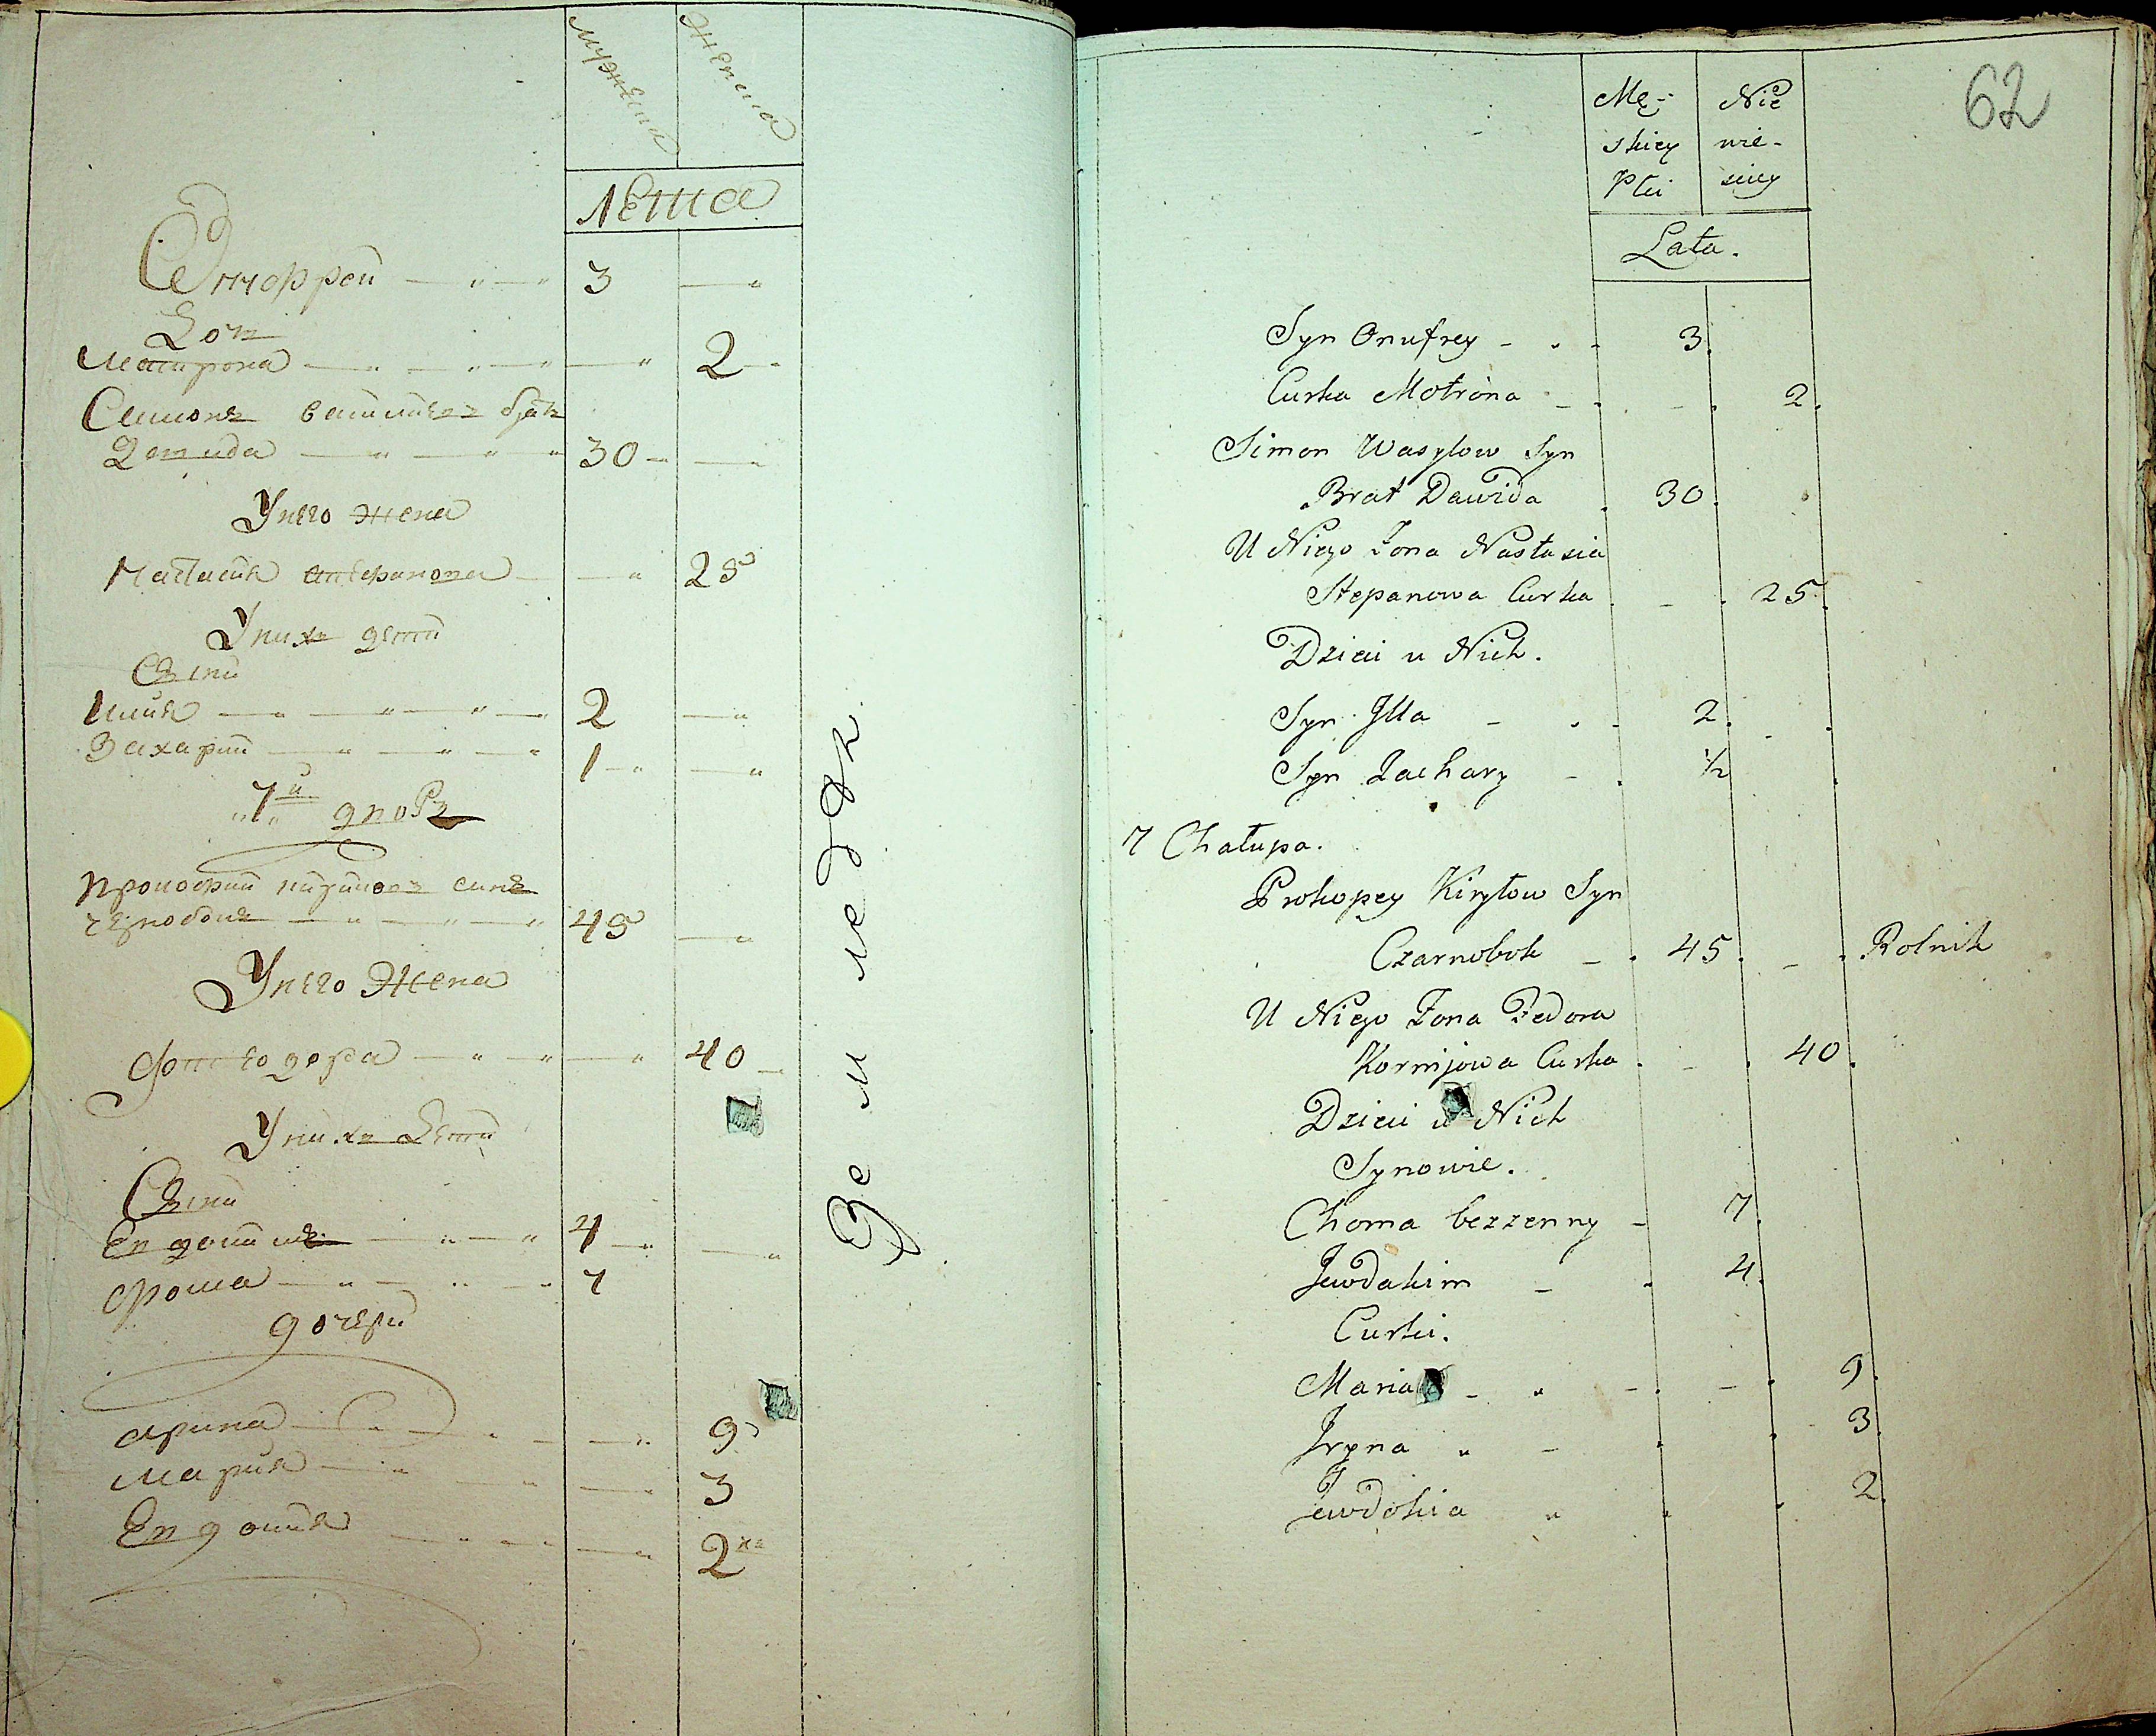 мужеска
женска
лета
Онофрей 3
Доч
Матрона 2
Симонъ василевъ братъ
Давида 30
Унего жена
Настасия степанова 25
Унихъ дети
Сыни
Илия 2
Захарий 1
7й дворъ
Прокофий кириловъ синъ
чернобокъ 45
Унего Жена
Феодора 40
Унихъ Дети
Сыни
Евдокимъ 4
фома 7
дочери
Арина 9
Мария 3
Евдокия 2
Земледел
62
Mę-
skiey
Płci
Nie
wie-
sciey
Lata.
Syn Onufrey 3.
Curka Motrona 2.
Simon Wasylow Syn
Brat Dawida 30.
U Niego Zona Nastazia
Stepanowa Curka 25.
Dzieci u Nich.
Syn Illa 2.
Syn Zachary 1/2
7 Chałupa.
Prokopey Kiryłow Syn
Czarnobok 45. Rolnik
U Niego Zona Fedora
Kornijowa Curka 40.
Dzieci u Nich
Synowie.
Choma bezzenny 7.
Jewdakim 4.
Curki.
Maria 9.
Iryna 3.
Jewdokia 2.